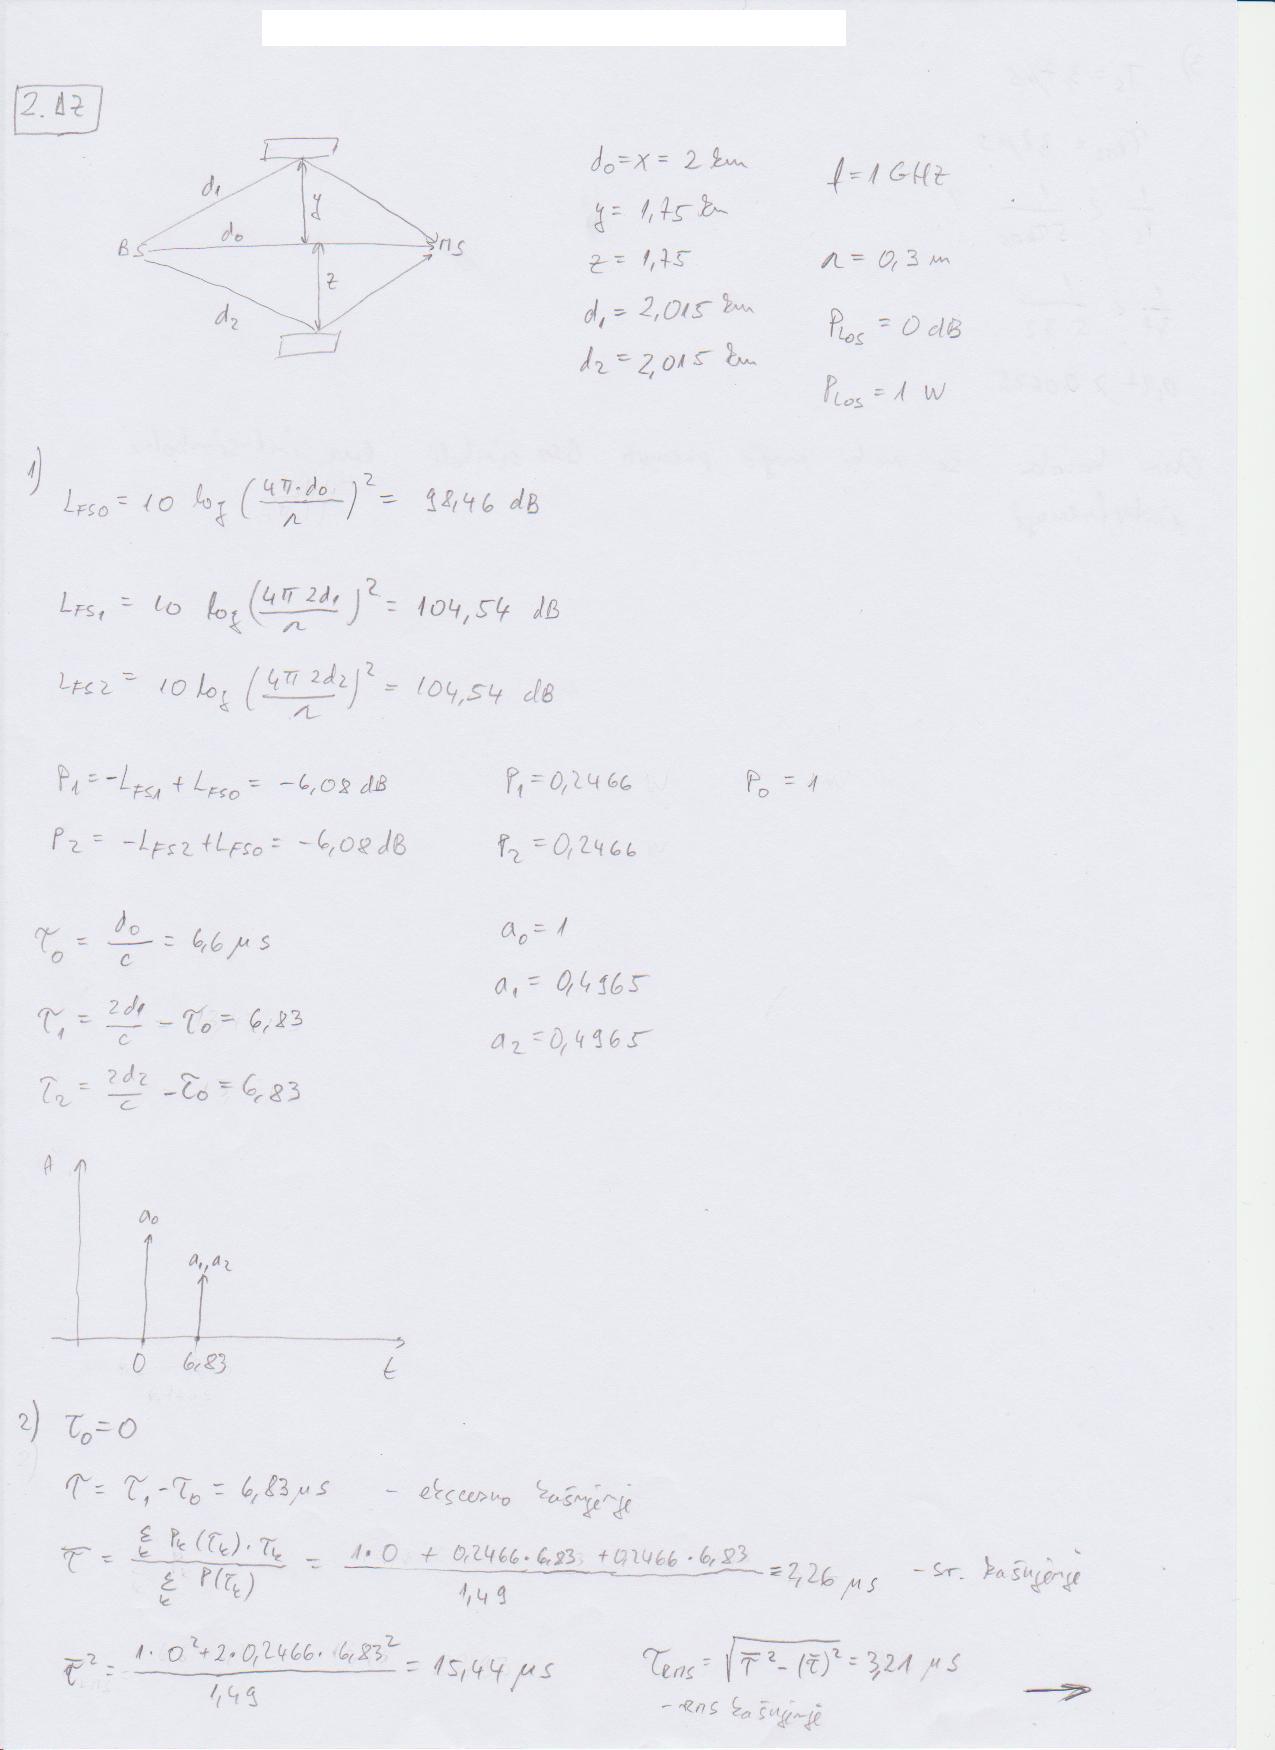 2. DZ
d₁ y d₀ BS MS z d₂
d₀ = x = 2 km
y = 1,75 km
z = 1,75
d₁ = 2,015 km
d₂ = 2,015 km
f = 1 GHz
λ = 0,3 m
P_LOS = 0 dB
P_LOS = 1 W
1)
L_FS0 = 10 log (4π·d₀/λ)² = 98,46 dB
L_FS1 = 10 log (4π 2d₁/λ)² = 104,54 dB
L_FS2 = 10 log (4π 2d₂/λ)² = 104,54 dB
P₁ = -L_FS1 + L_FS0 = -6,08 dB P₁ = 0,2466 P₀ = 1
P₂ = -L_FS2 + L_FS0 = -6,08 dB P₂ = 0,2466
τ₀ = d₀/c = 6,6 μs a₀ = 1
τ₁ = 2d₁/c - τ₀ = 6,83 a₁ = 0,4965
τ₂ = 2d₂/c - τ₀ = 6,83 a₂ = 0,4965
A
a₀
a₁,a₂
0 6,83 t
2) τ₀ = 0
τ = τ₁ - τ₀ = 6,83 μs - ekscesno kašnjenje
τ̄ = Σₖ Pₖ(τₖ)·τₖ / Σₖ P(τₖ) = (1·0 + 0,2466·6,83 + 0,2466·6,83) / 1,49 = 2,26 μs - sr. kašnjenje
τ̄² = (1·0² + 2·0,2466·6,83²) / 1,49 = 15,44 μs τ_RMS = √(τ̄² - (τ̄)²) = 3,21 μs
- rms kašnjenje →